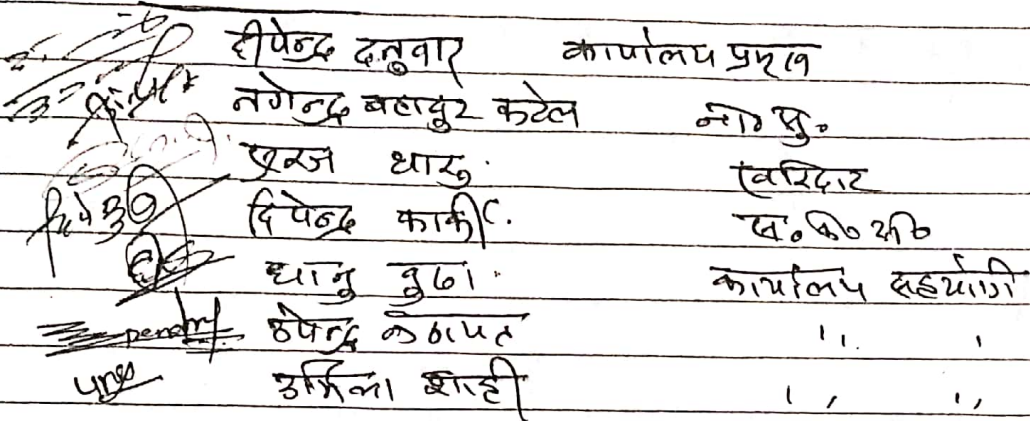 दीपेन्द्र दनुवार कार्यालय प्रमुख
नगेन्द्र बहादुर कटेल ना० सु०
सुरज थारु खरिदार
दिपेन्द्र कार्की
धानु बुढा कार्यालय सहयोगी
उपेन्द्र ,, ,
उर्मिला शाही ,, ,,